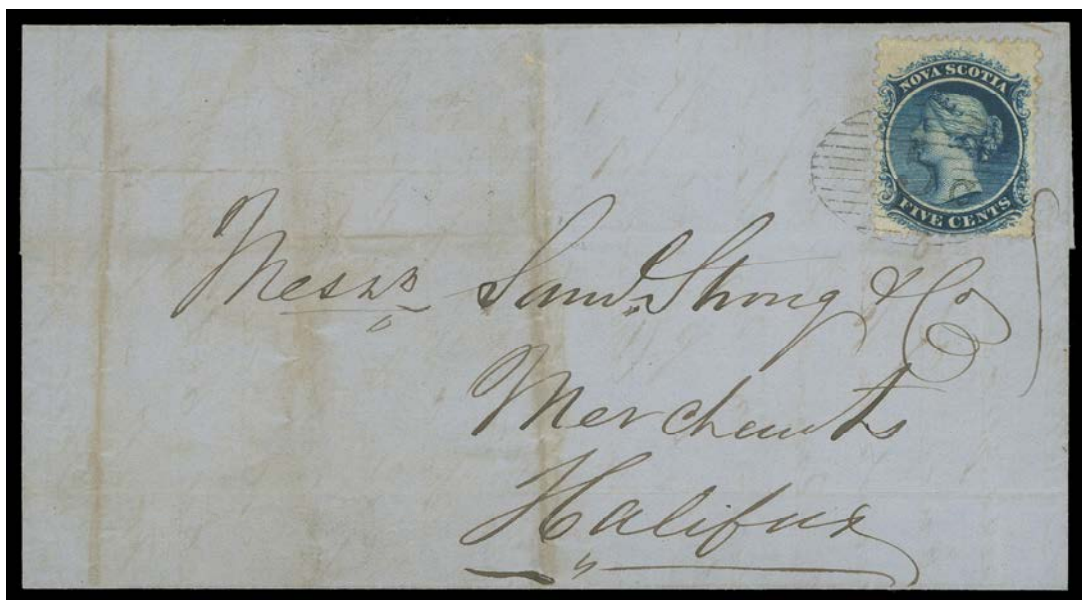 NOVA SCOTIA
FIVE CENTS
Messrs Saml. Strong & Co
Merchants
Halifax